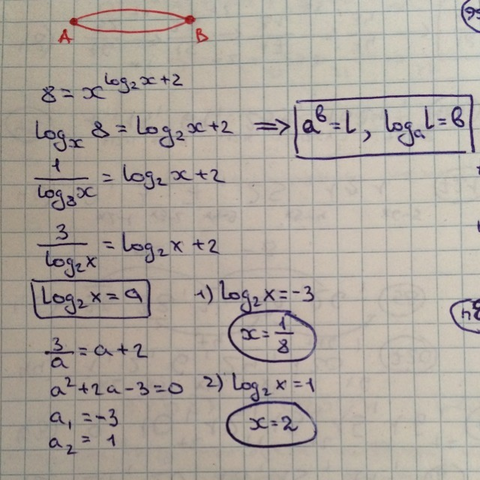 A B
8 = x^(log₂x+2)
logₓ 8 = log₂x+2 ⟹ a^b = l, logₐl = b
1/log₈x = log₂x+2
3/log₂x = log₂x+2
log₂x = a
1) log₂x = -3
x = 1/8
3/a = a+2
a²+2a-3=0
2) log₂x = 1
a₁ = -3
x = 2
a₂ = 1